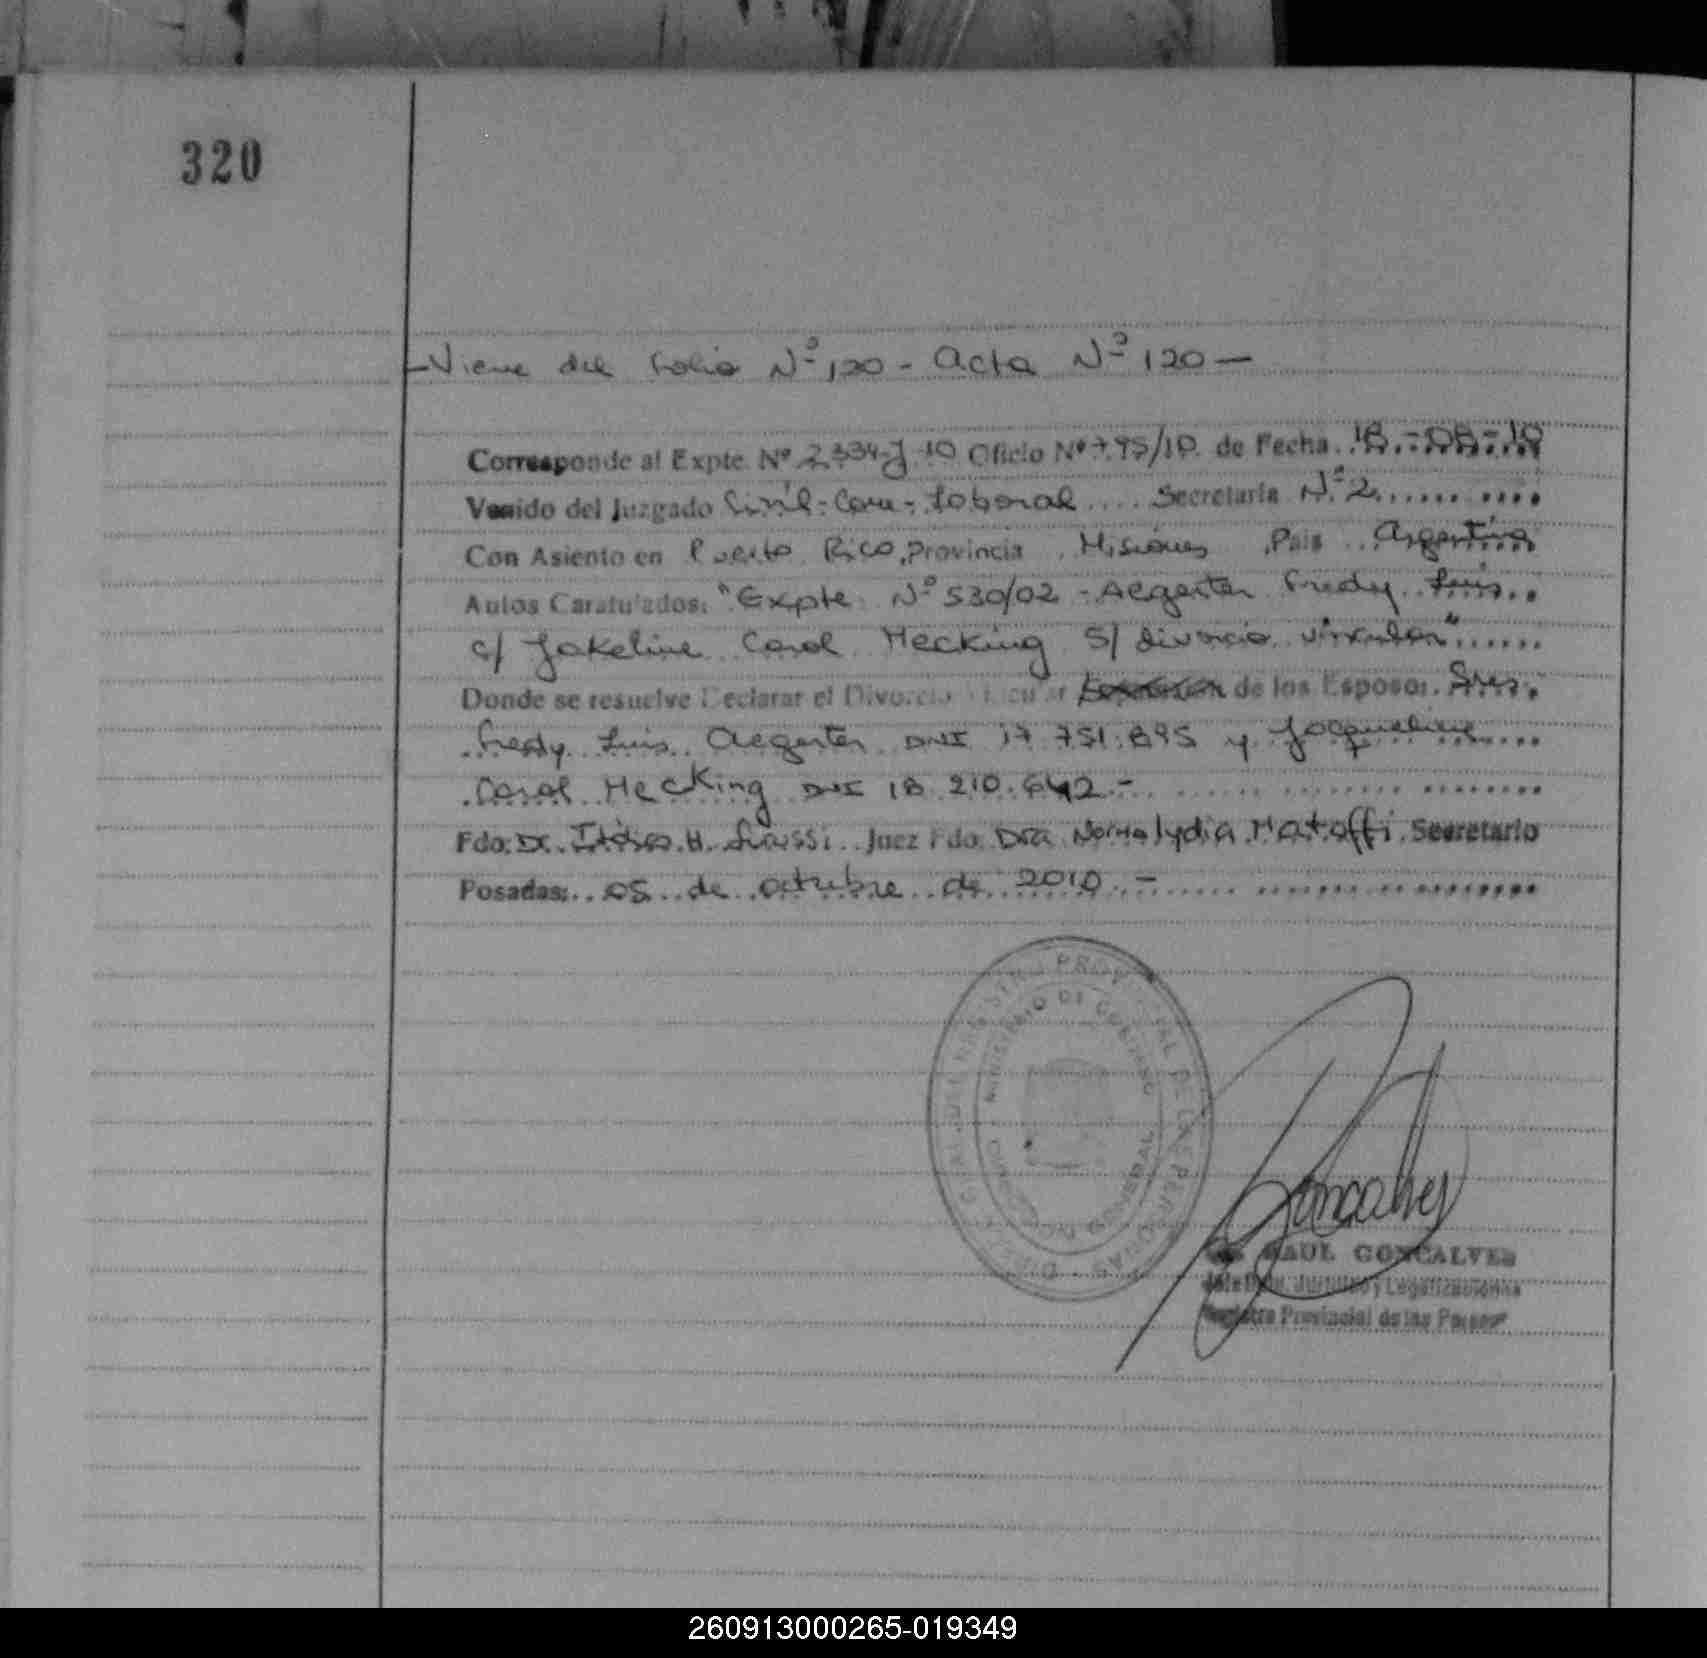 320
-Viene del folio Nº 120 - Acta Nº 120 -
Corresponde al Expte. Nº 2334-J-10 Oficio Nº 795/10 de Fecha 18-08-10
Venido del Juzgado Civil-Com-Laboral Secretaría Nº 2
Con Asiento en Puerto Rico, Provincia Misiones País Argentina
Autos Caratulados: "Expte Nº 530/02 - Aegerter Fredy Luis
c/ Jakeline Carol Hecking S/ divorcio vincular"
Donde se resuelve Declarar el Divorcio Vincular de los Esposos Sres.
Fredy Luis Aegerter DNI 17.751.895 y Jacqueline
Carol Hecking DNI 18.210.642-
Fdo: Dr. H. Juez Fdo: Dra Norma Lydia Matoffi Secretario
Posadas: 05 de octubre de 2010 -
REGISTRO PROVINCIAL DE LAS PERSONAS
MINISTERIO DE GOBIERNO
GENERAL
Goncalves
RAUL GONCALVES
Jefe Dpto. Jurídico y Legalizaciones
Registro Provincial de las Personas
260913000265-019349